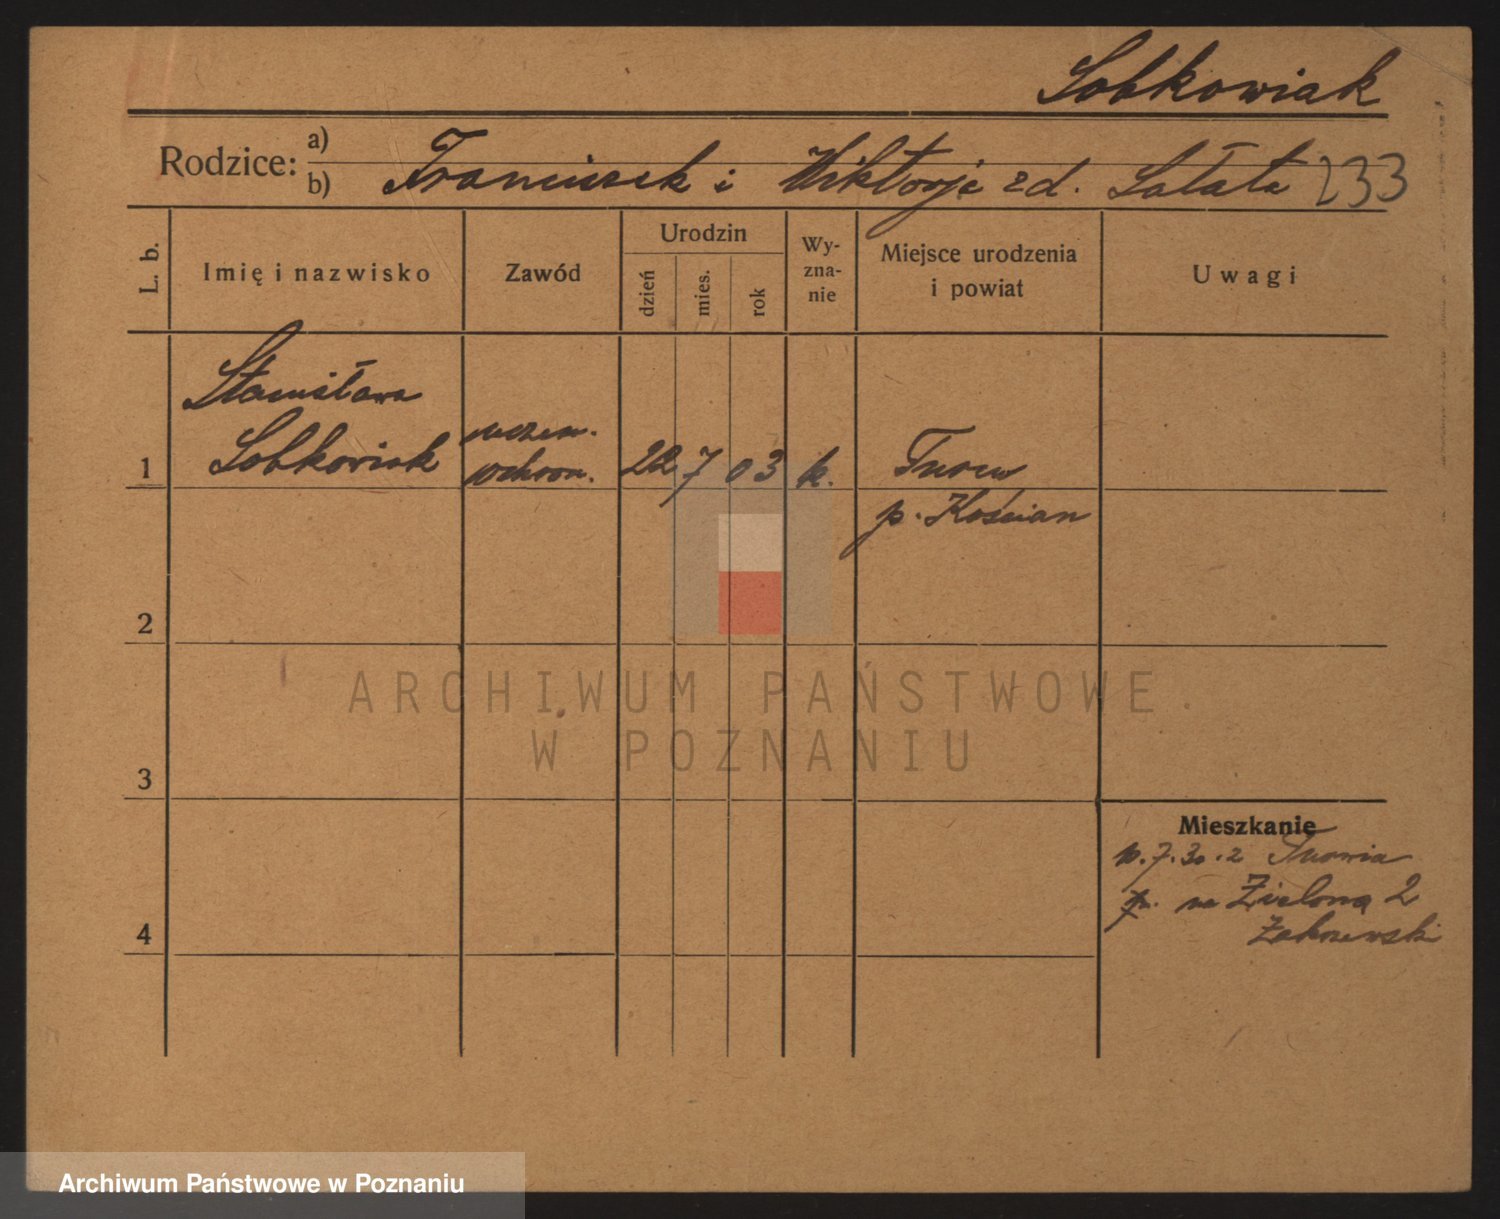 Sobkowiak
Rodzice: a)
b) Franciszek i Wiktorja zd. Sałata 233
L. b.
Imię i nazwisko
Zawód
Urodzin
dzień
mies.
rok
Wy-
zna-
nie
Miejsce urodzenia
i powiat
Uwagi
Stanisława
1 Sobkowiak uczen. ochron. 22 7 03 k. Turew
p. Kościan
2
3
4
Mieszkanie
p. 7.30.2
na Zieloną 2
Zakrzewski
ARCHIWUM PAŃSTWOWE
W POZNANIU
Archiwum Państwowe w Poznaniu